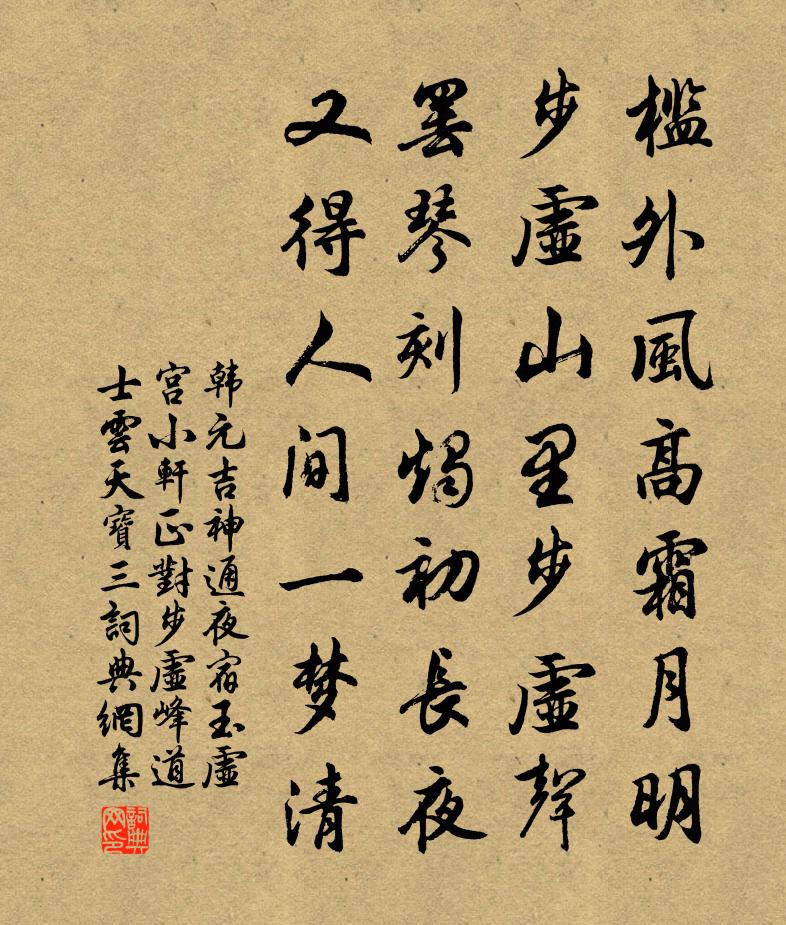 槛外風高霜月明
步虛山里步虛聲
罢琴刻燭初長夜
又得人间一梦清
韩元吉神通夜宿玉虛
宫小軒正對步虛峰道
士雲天寶三詞典網集
詞典
网印